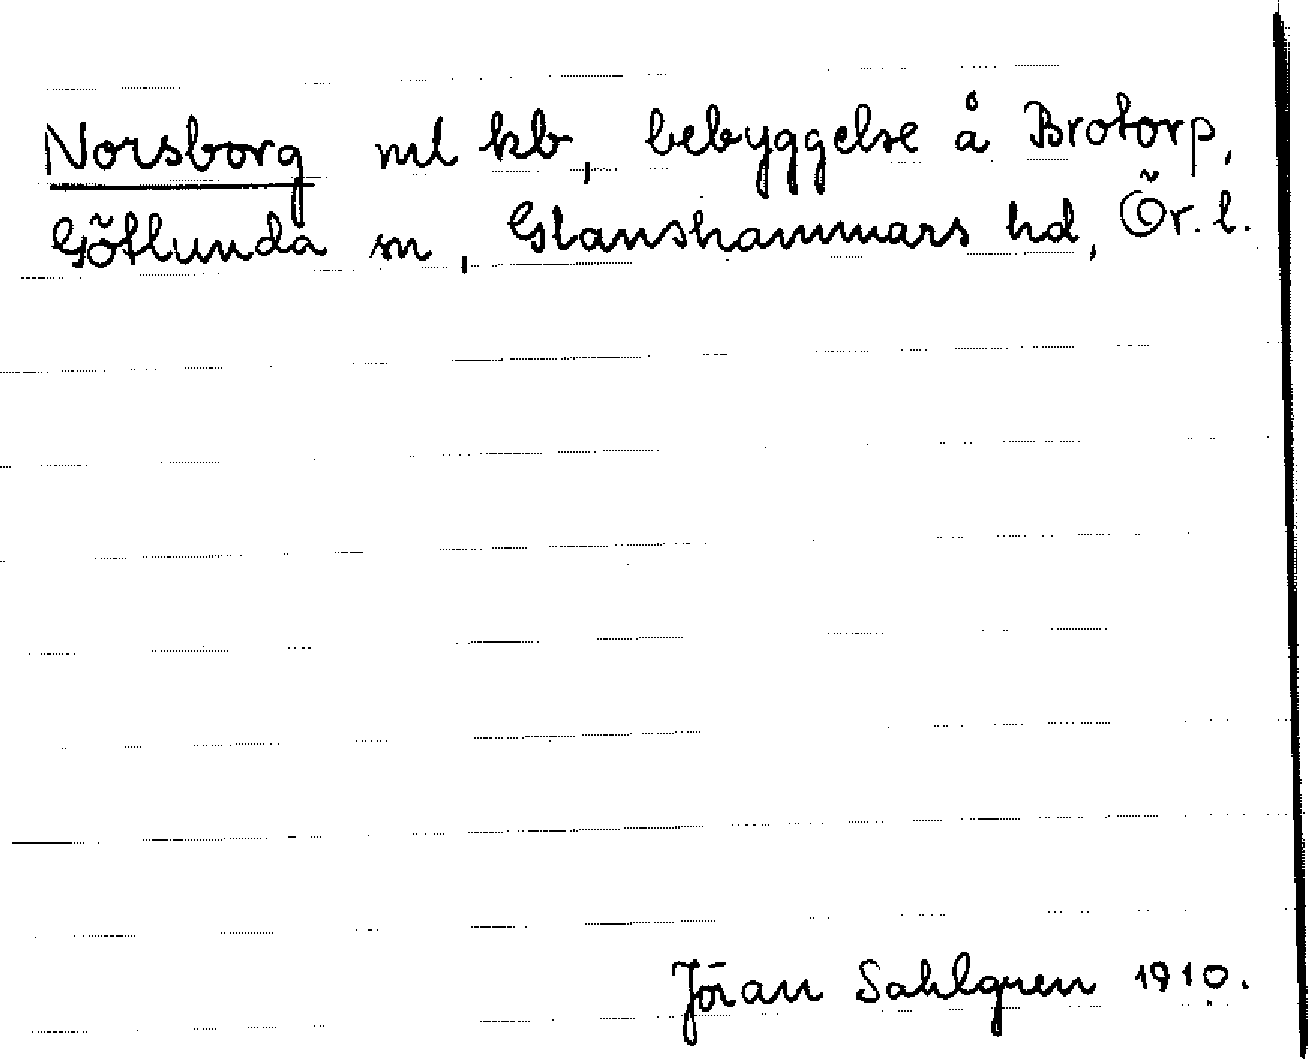 Norsborg ml kb, bebyggelse å Brotorp,
Götlunda sn, Glanshammars hd, Ör. l.
Jöran Sahlgren 1910.